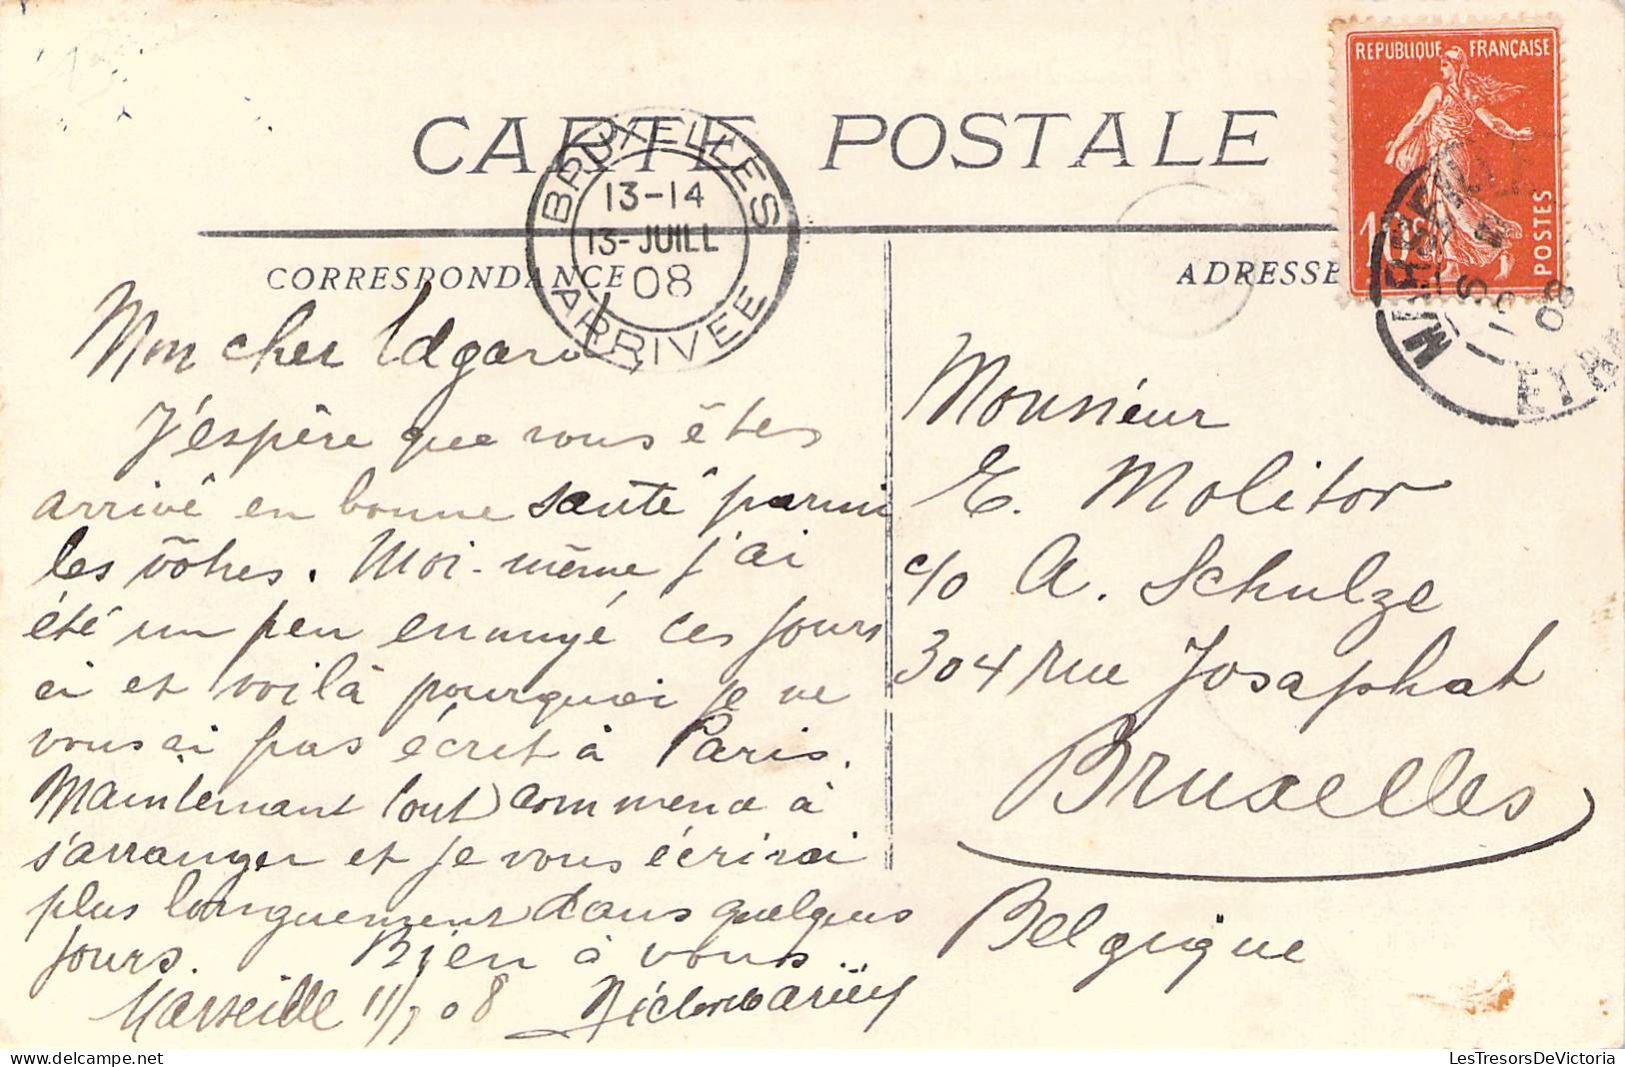 CARTE POSTALE
REPUBLIQUE FRANÇAISE
10c
POSTES
BRUXELLES
13-14
13-JUILL
08
ARRIVEE
MARSEILLE
08
CORRESPONDANCE
ADRESSE
Mon cher Edgard,
J'espère que vous êtes
arrivé en bonne santé parmi
les vôtres. Moi-même j'ai
été un peu ennuyé ces jours
ci et voilà pourquoi je ne
vous ai pas écrit à Paris.
Maintenant tout commence à
s'arranger et je vous écrirai
plus longuement dans quelques
jours. Bien à vous
Marseille 11/7 08
Monsieur
E. Molitor
c/o A. Schulze
304 rue Josaphat
Bruxelles
Belgique
LesTresorsDeVictoria